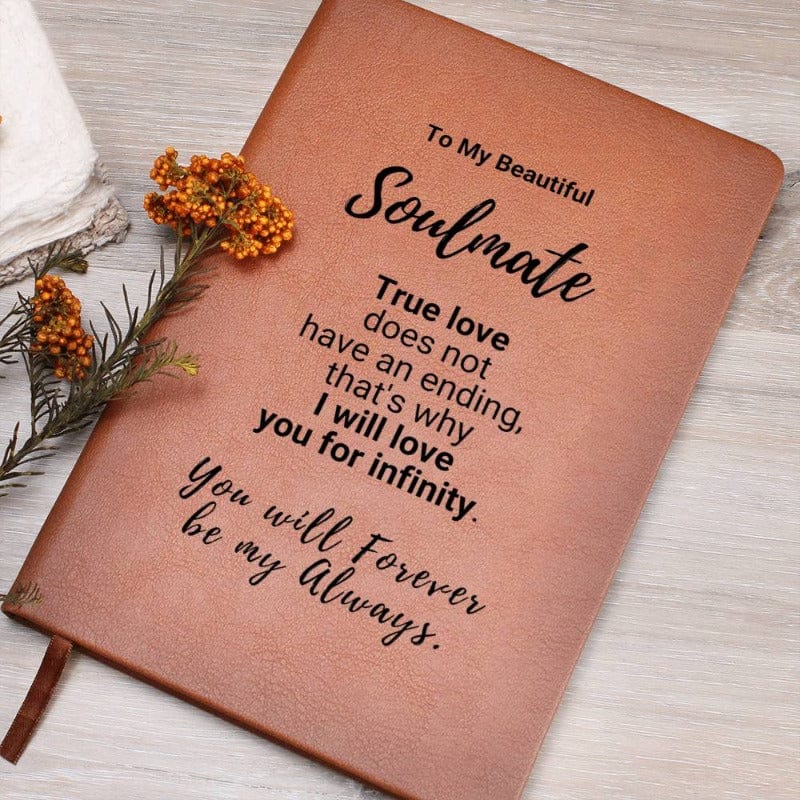 To My Beautiful
Soulmate
True love
does not
have an ending,
that's why
I will love
you for infinity.
You will Forever
be my Always.